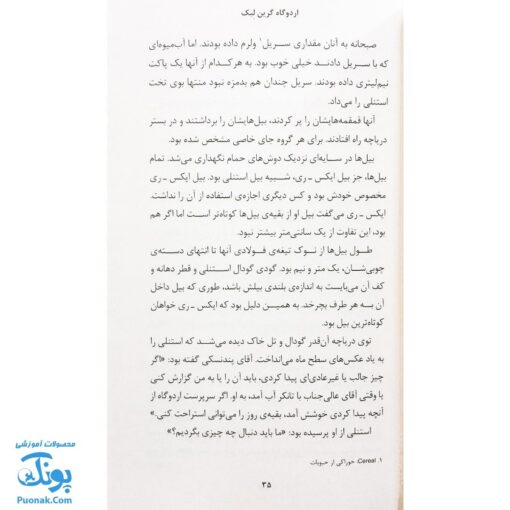 اردوگاه گرین لیک
صبحانه به آنان مقداری سریل۱ ولرم داده بودند. اما آب‌میوه‌ای
که با سریل دادند خیلی خوب بود. به هرکدام از آنها یک پاکت
نیم‌لیتری داده بودند. سریل چندان هم بدمزه نبود منتها بوی تخت
استنلی را می‌داد.
آنها قمقمه‌هایشان را پر کردند، بیل‌هایشان را برداشتند و در بستر
دریاچه راه افتادند. برای هر گروه جای خاصی مشخص شده بود.
بیل‌ها در سایه‌ای نزدیک دوش‌های حمام نگهداری می‌شد. تمام
بیل‌ها، جز بیل ایکس ـ ری، شبیه بیل استنلی بود. بیل ایکس ـ ری
مخصوص خودش بود و کس دیگری اجازه‌ی استفاده از آن را نداشت.
ایکس ـ ری می‌گفت بیل او از بقیه‌ی بیل‌ها کوتاه‌تر است اما اگر هم
بود، این تفاوت از یک سانتی‌متر بیشتر نبود.
طول بیل‌ها از نوک تیغه‌ی فولادی آنها تا انتهای دسته‌ی
چوبی‌شان، یک متر و نیم بود. گودی گودال استنلی و قطر دهانه و
کف آن می‌بایست به اندازه‌ی بلندی بیلش باشد، طوری که بیل داخل
آن به هر طرف بچرخد. به همین دلیل بود که ایکس ـ ری خواهان
کوتاه‌ترین بیل بود.
توی دریاچه آن‌قدر گودال و تل خاک دیده می‌شد که استنلی را
به یاد عکس‌های سطح ماه می‌انداخت. آقای پندنسکی گفته بود: «اگر
چیز جالب یا غیرعادی‌ای پیدا کردی، باید آن را یا به من گزارش کنی
یا وقتی آقای عالی‌جناب با تانکر آب آمد، به او. اگر سرپرست اردوگاه از
آنچه پیدا کردی خوشش آمد، بقیه‌ی روز را می‌توانی استراحت کنی.»
استنلی از او پرسیده بود: «ما باید دنبال چه چیزی بگردیم؟»
۱. Cereal: خوراکی از حبوبات
۳۵
محصولات آموزشی
پونک
Puonak.Com